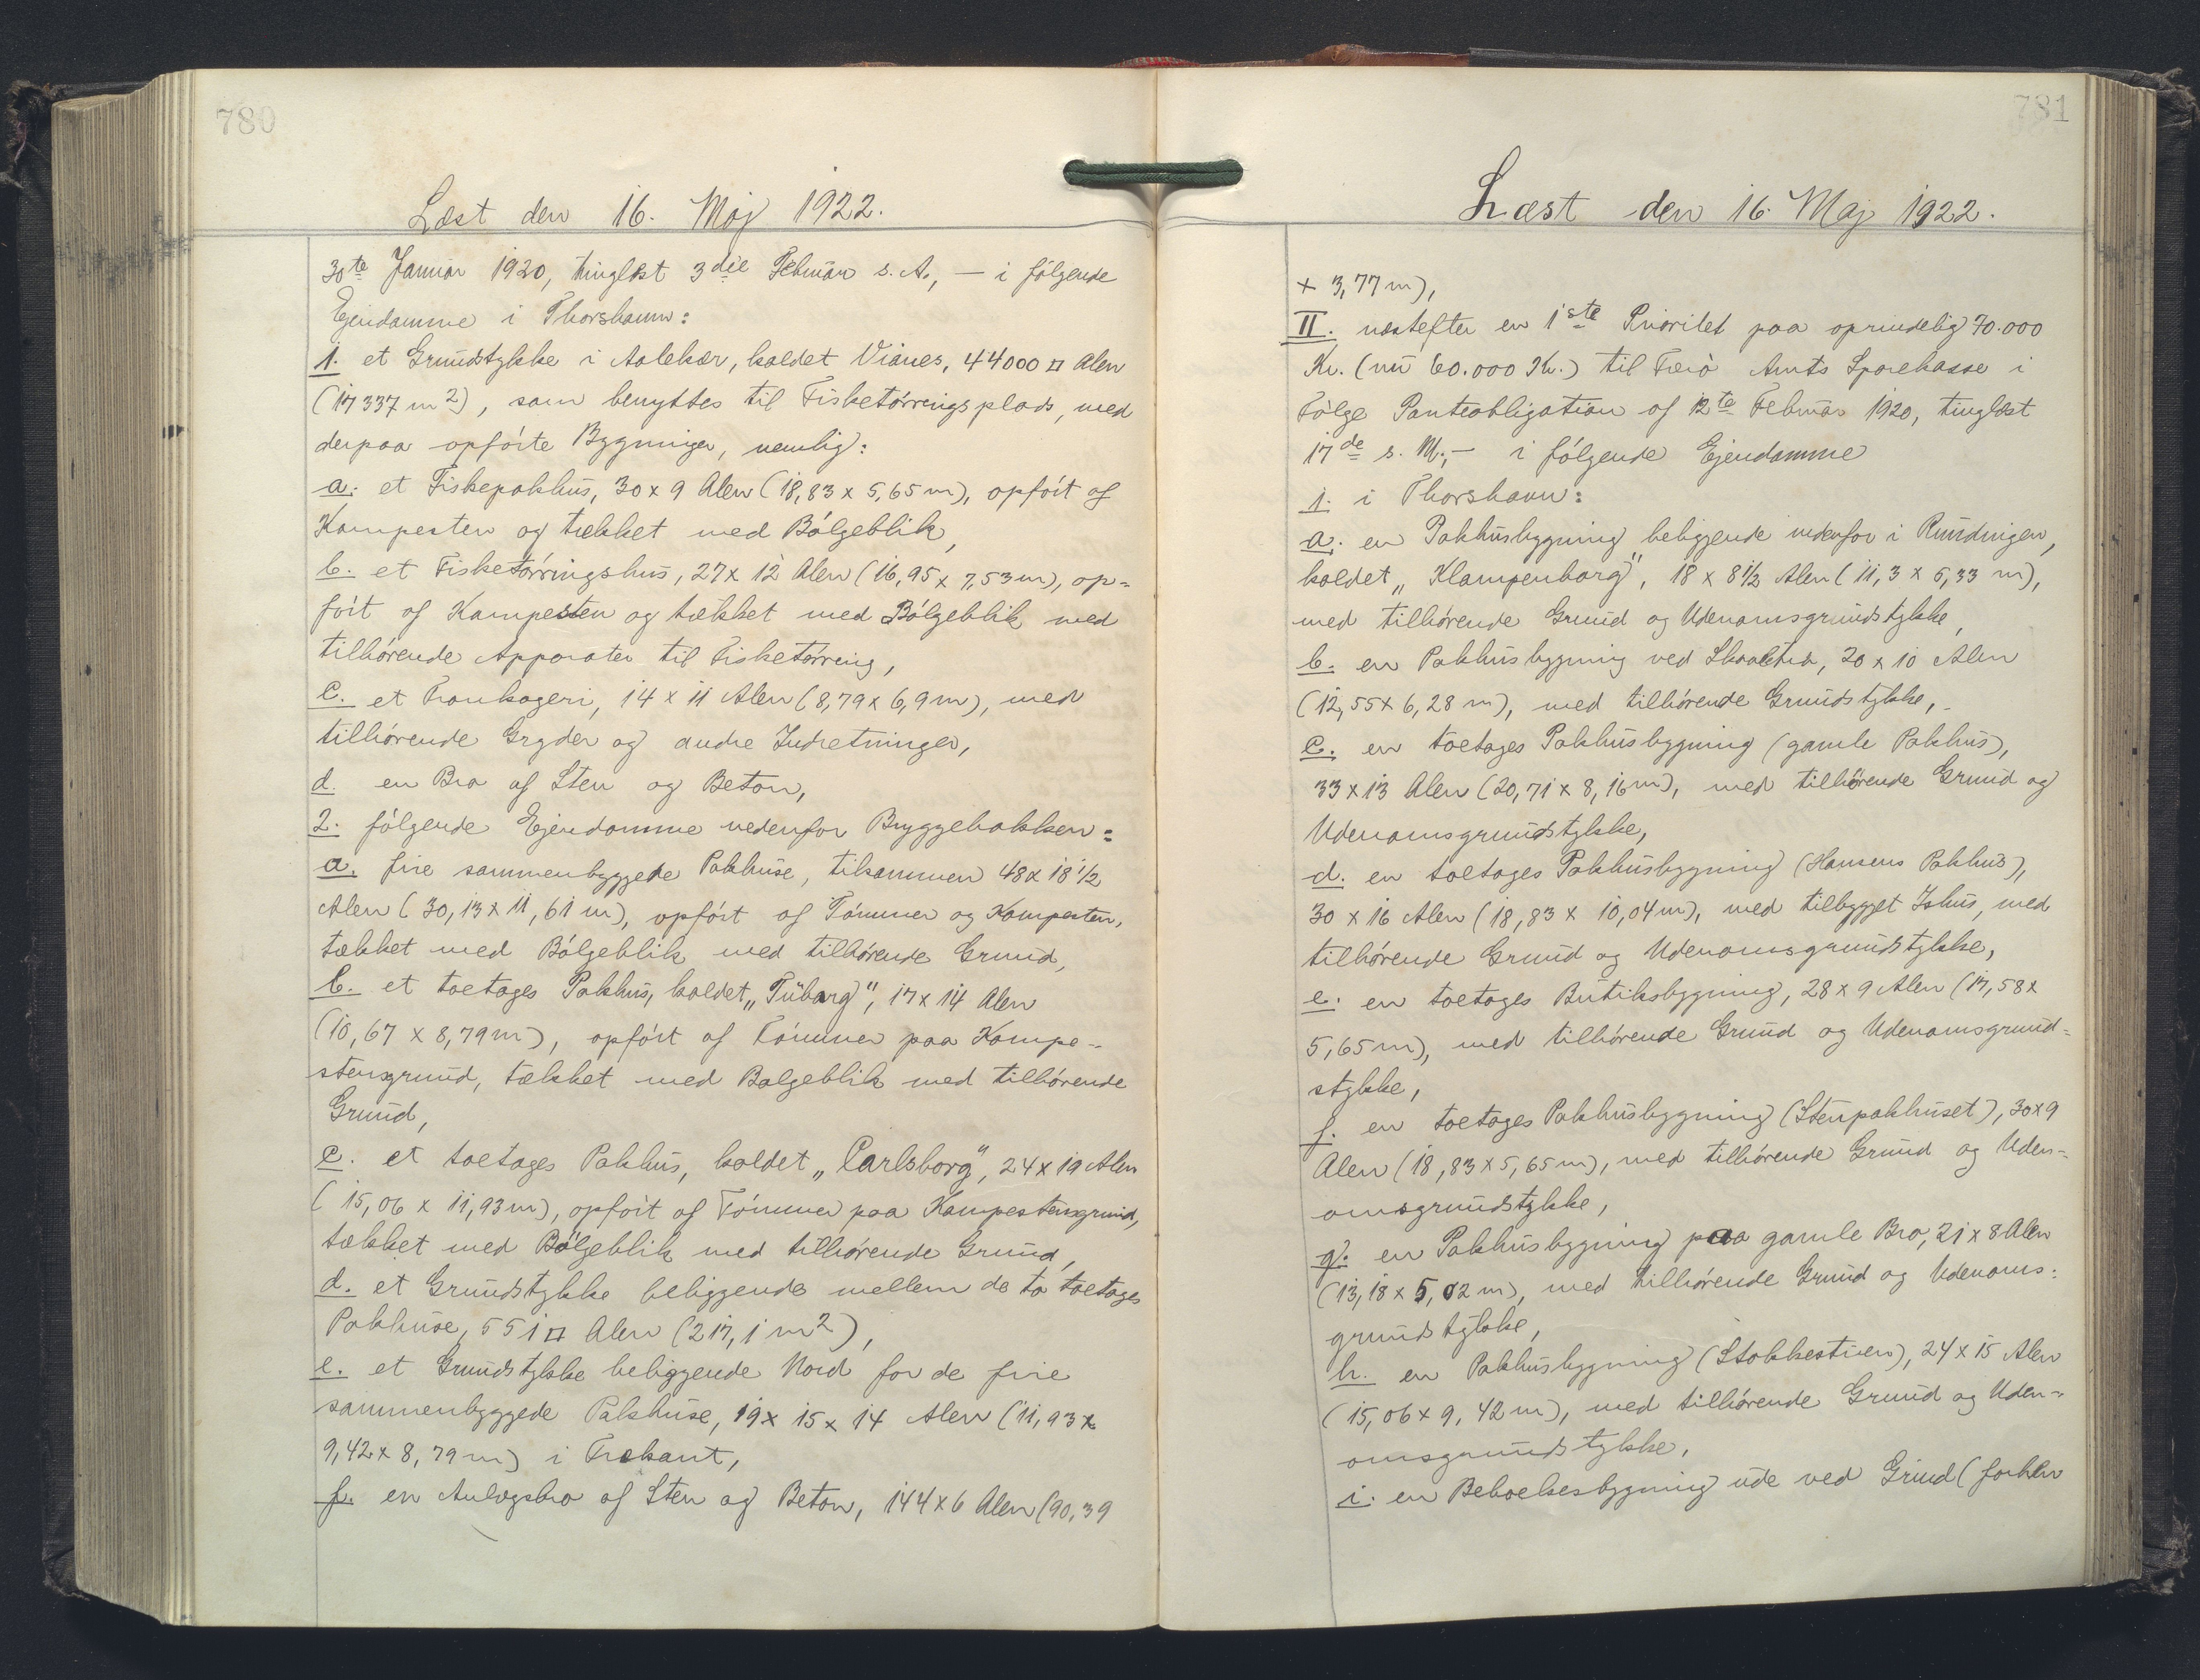 780
Læst den 16. Maj 1922.
30te Januar 1920, tinglæst 3die Februar s. A., — i følgende
Ejendomme i Thorshavn:
1. et Grundstykke i Aalekær, kaldet Vianes, 44000 □ Alen
(17337 m2), som benyttes til Fisketørringsplads, med
derpaa opførte Bygninger, nemlig:
a. et Fiskepakhus, 30 x 9 Alen (18,83 x 5,65 m), opført af
Kampesten og tækket med Bølgeblik,
b. et Fisketørringshus, 27 x 12 Alen (16,95 x 7,53 m), op=
ført af Kampesten og tækket med Bølgeblik med
tilhørende Apparater til Fisketørring,
c. et Trankogeri, 14 x 11 Alen (8,79 x 6,9 m), med
tilhørende Gryder og andre Indretninger,
d. en Bro af Sten og Beton,
2. følgende Ejendomme nedenfor Bryggebakken:
a. fire sammenbyggede Pakhuse, tilsammen 48 x 18 1/2
Alen (30,13 x 11,61 m), opført af Tømmer og Kampesten,
tækket med Bølgeblik med tilhørende Grund,
b. et toetages Pakhus, kaldet „Tuborg", 17 x 14 Alen
(10,67 x 8,79 m), opført af Tømmer paa Kampe=
stensgrund, tækket med Bølgeblik med tilhørende
Grund,
c. et toetages Pakhus, kaldet „Carlsborg", 24 x 19 Alen
(15,06 x 11,93 m), opført af Tømmer paa Kampestensgrund,
tækket med Bølgeblik med tilhørende Grund,
d. et Grundstykke beliggende mellem de to toetages
Pakhuse, 551 □ Alen (217,1 m2),
e. et Grundstykke beliggende Nord for de fire
sammenbyggede Pakhuse, 19 x 15 x 14 Alen (11,93 x
9,42 x 8,79 m) i Trekant,
f. en Anlægsbro af Sten og Beton, 144 x 6 Alen (90,39
781
Læst den 16. Maj 1922.
x 3,77 m),
II. næstefter en 1ste Prioritet paa oprindelig 70.000
Kr. (nu 60.000 Kr.) til Færø Amts Sparekasse i
Følge Panteobligation af 12te Februar 1920, tinglæst
17de s. M., — i følgende Ejendomme
1. i Thorshavn:
a. en Pakhusbygning beliggende nedenfor i Rundingen,
kaldet „Klampenborg", 18 x 8 1/2 Alen (11,3 x 5,33 m),
med tilhørende Grund og Udenomsgrundstykke,
b. en Pakhusbygning ved 20 x 10 Alen
(12,55 x 6,28 m), med tilhørende Grundstykke,
c. en toetages Pakhusbygning (gamle Pakhus),
33 x 13 Alen (20,71 x 8,16 m), med tilhörende Grund og
Udenomsgrundstykke,
d. en toetages Pakhusbygning (Hansens Pakhus),
30 x 16 Alen (18,83 x 10,04 m), med tilbygget Ishus, med
tilhørende Grund og Udenomsgrundstykke,
e. en toetages Butiksbygning, 28 x 9 Alen (17,58 x
5,65 m), med tilhørende Grund og Udenomsgrund=
stykke,
f. en toetages Pakhusbygning (Stenpakhuset), 30 x 9
Alen (18,83 x 5,65 m), med tilhørende Grund og Uden=
omsgrundstykke,
g. en Pakhusbygning paa gamle Bro, 21 x 8 Alen
(13,18 x 5,02 m), med tilhørende Grund og Udenoms=
grundstykke,
h. en Pakhusbygning (Stokkestuen), 24 x 15 Alen
(15,06 x 9,42 m), med tilhørende Grund og Uden=
omsgrundstykke,
i. en Beboelsesbygning ude ved Grind (forhen